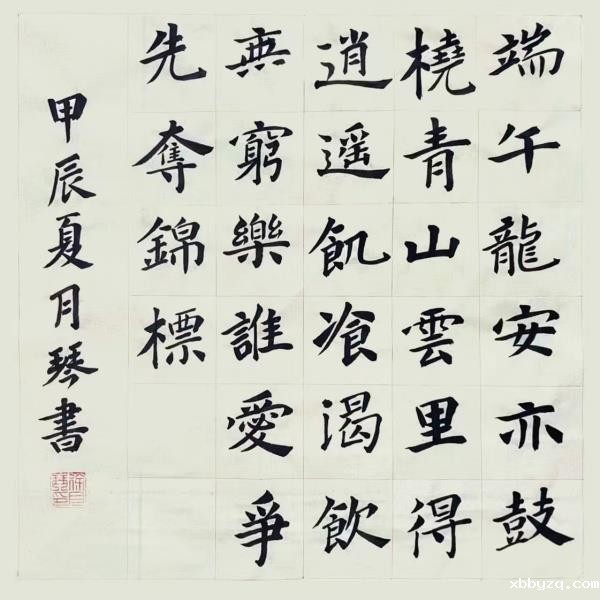 端午龍安亦鼓
橈青山雲里得
逍遥飢飡渴飲
無窮樂誰愛爭
先奪錦標
甲辰夏月琴書
xbbyzq.com